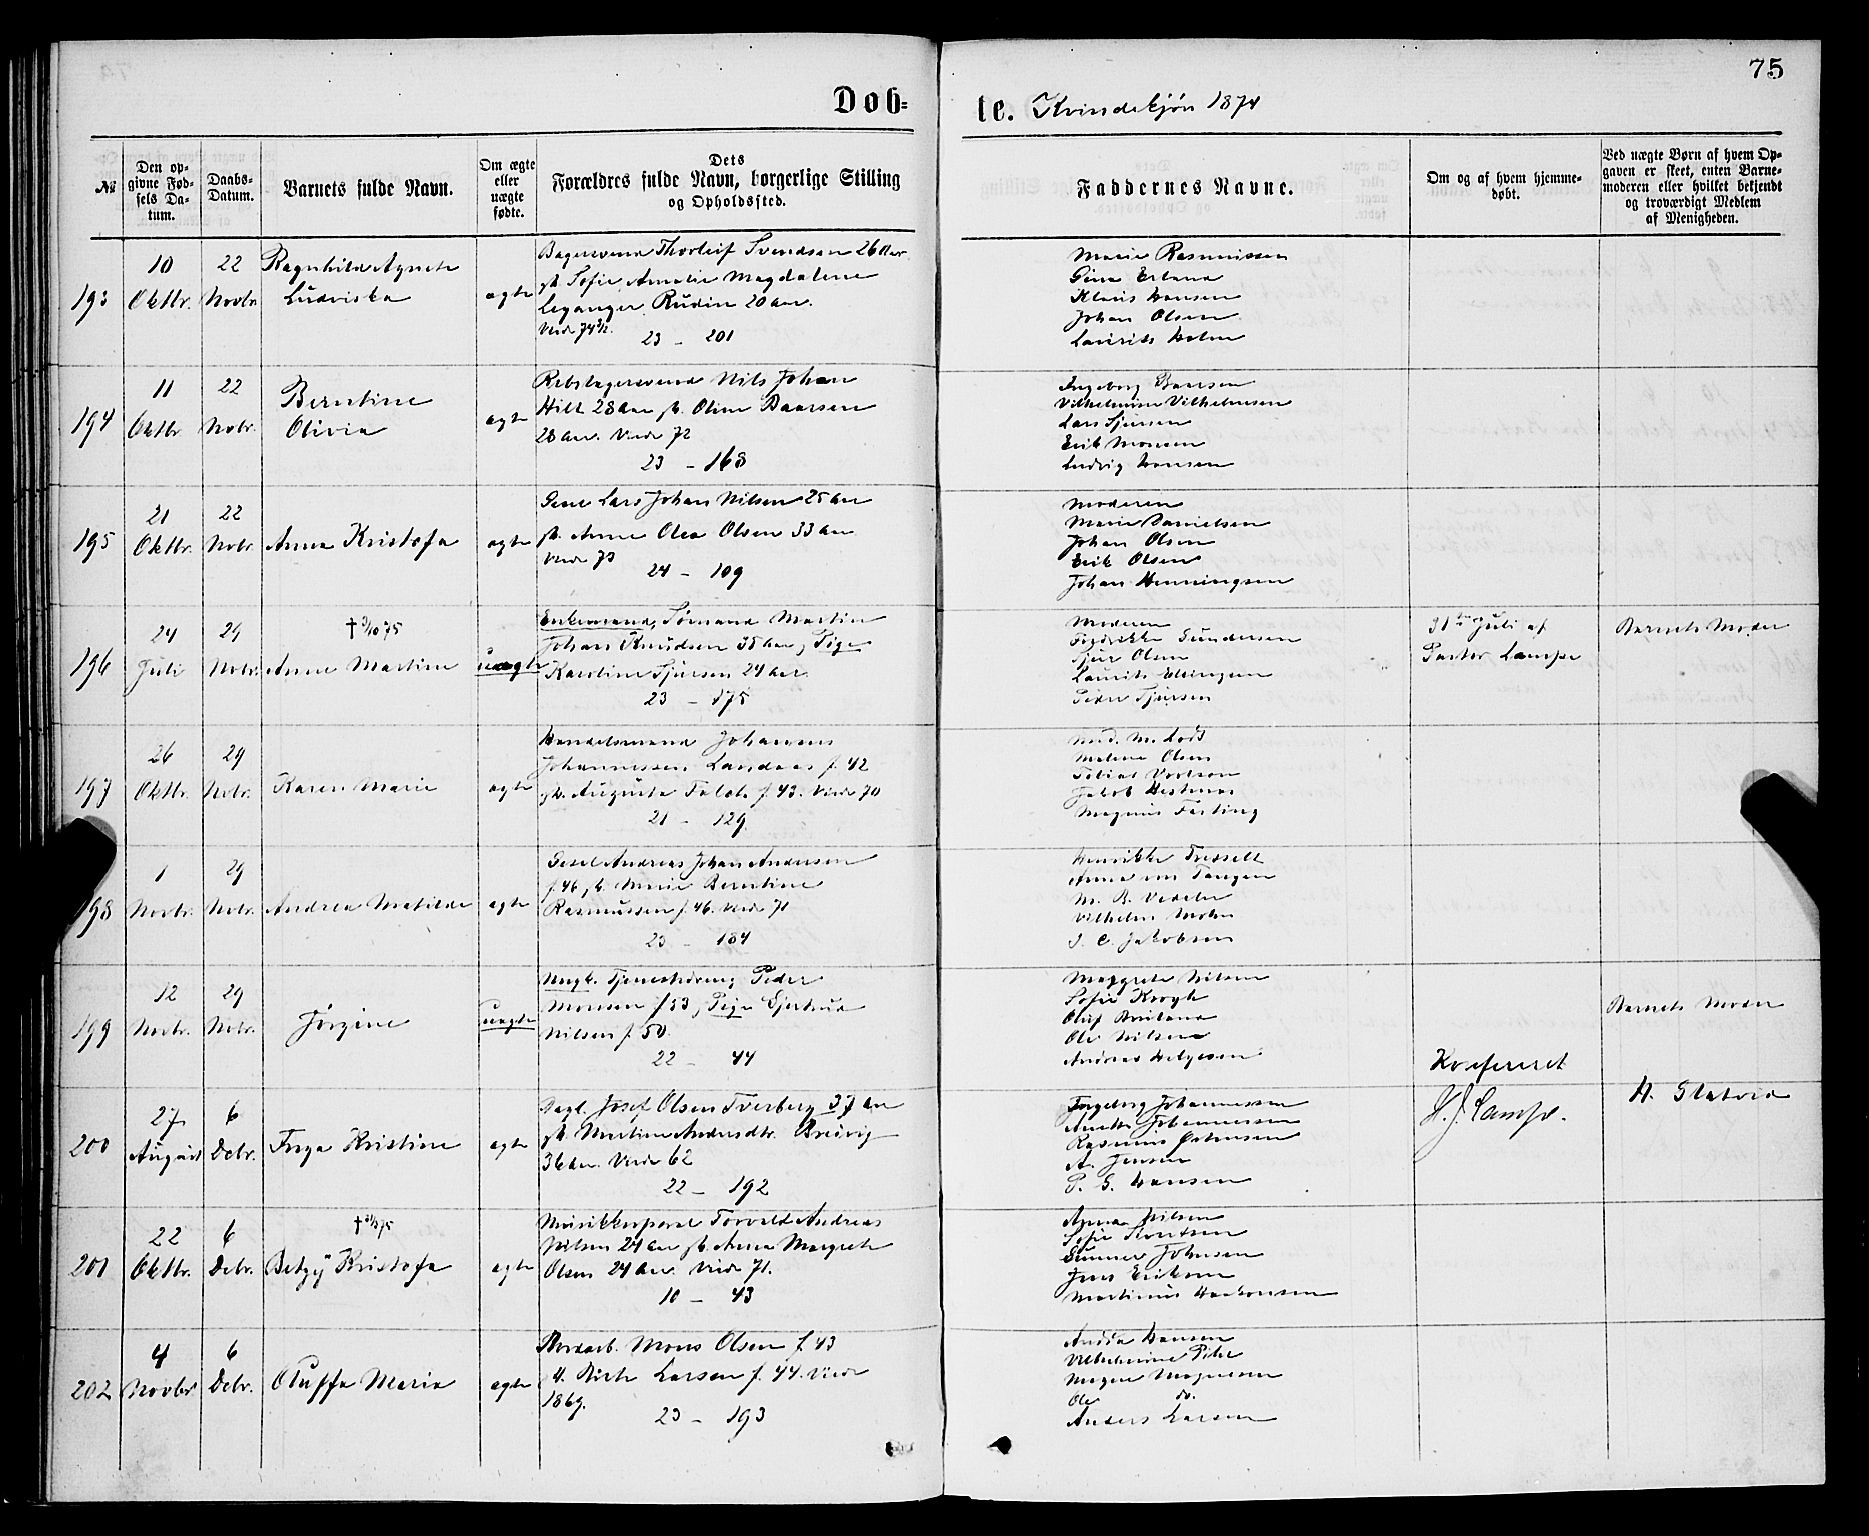 75
Døb-
te. Kvindekjøn 1874
№
Den op-
givne Fød-
sels Da-
tum.
Daabs-
Datum.
Barnets fulde Navn.
Om ægte
eller
uægte
fødte.
Dets
Forældres fulde Navn, borgerlige Stilling
og Opholdssted.
Faddernes Navne.
Om og af hvem hjemme-
døbt.
Ved uægte Børn af hvem Op-
gaven er skeet, enten Barne-
moderen eller hvilket bekjendt
og troværdigt Medlem
af Menigheden.
193
10
Oktbr.
22
Novbr.
Ragnhild Agnete
Ludvika
ægte
Bagersvend Thorleif Svendsen 26 Aar
Sofie Amalie Magdalene
Leganger Rudin 20 aar.
23 - 201
Marie Rasmussen
Gina Erland
Klaus Hansen
Johan Olsen
Laurits Holm
194
11
Oktbr.
22
Nobr.
Berntine
Olivia
ægte
Rebslagersvend Nils Johan
Hilt 28 aar Oline Baarsen
28 Aar. Viede 72
23 - 168
Ingeborg Baarsen
Vilhelmine Vilhelmsen
Lars Sjursen
Erik Monsen
Ludvig Hansen
195
21
Oktbr.
22
Nobr.
Anna Kristofa
ægte
Lars Johan Nilsen 25 aar
Anne Olea Olsen 33 aar
Viede 73
24 - 109
Moderen
Marie Danielsen
Johan Olsen
Erik Olsen
Johan Henningsen
196
24
Juli
29
Nobr.
†
Anne Martine
uægte
Enkemand, Sømand Martin
Johan Knudsen 35 aar, Pige
Karoline Sjursen 24 aar.
23 - 175
Moderen
Fredrikke Gundersen
Sjur Olsen
Laurits Ellingsen
Peder Sjursen
31te Juli af
Pastor Lampe
Barnets Moder
197
26
Oktbr.
29
Nobr.
Karen Marie
ægte
Handelsmand Johannes
Johannessen Landaas f. 42
Augusta Falch f. 43. Viede 70
21 - 129
Malene Olsen
Magnus Fasting
198
1
Novbr.
29
Nobr.
Andrea Matilde
ægte
Andreas Johan Andersen
f. 46 Marie Berntine
Rasmussen f. 46. Viede 71
23 - 184
Vilhelm Mohn
J. C. Jakobsen
199
12
Novbr.
29
Nobr.
Jørgine
uægte
Ungk. Tjenestedreng Peder
Monsen f. 53, Pige Gjertrud
Nilsen f. 50.
22 - 44
Margrete Nilsen
Sofie Krogh
Ole Nilsen
Andreas Helgesen
Barnets Moder
200
27
August
6
Debr.
Inga Kristine
ægte
Dagl. Josef Olsen Tverberg 37 aar
Martine Andersdtr. Breivig
36 aar. Viede 62
22 - 192
Ingeborg Johannessen
Anette Johannessen
A. Jensen
P. G. Hansen
Konfereret
J. J. Lampe.
201
22
Oktbr.
6
Debr.
†
Betzÿ Kristofa
ægte
Musikkorporal Torvald Andreas
Nilsen 24 aar Anna Margrete
Olsen 24 aar. Viede 71.
10 - 43
Anna Nilsen
Sofie Knutsen
Gunner Johnsen
Jens Eriksen
Martinus Haakonsen
202
4
Novbr
6
Debr.
Oluffa Maria
ægte
Mons Olsen f. 43
Larsen f. 44. Viede
1869.
23 - 193
Hansen
Vilhelmine Pihl
Mogens Mogensen
Ole do.
Anders Larsen